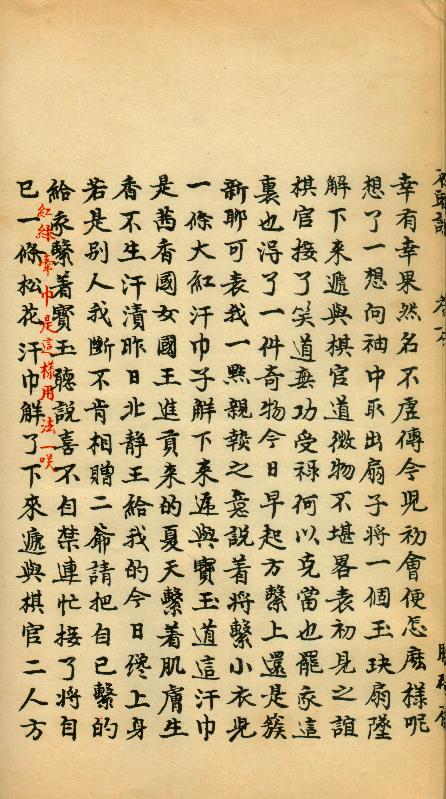 幸有幸果然名不虛傳今児初會便怎麽樣呢
想了一想向袖中取出扇子將一個玉玦扇墜
解下來遞與棋官道微物不堪畧表初見之誼
棋官接了笑道無功受祿何以克當也罷我這
裏也淂了一件奇物今日早起方繫上還是簇
新聊可表我一㸃親𤍠之意說着將繫小衣児
一條大紅汗巾子觧下来遞與寶玉道這汗巾
是茜香國女國王進貢来的夏天繫着肌膚生
香不生汗漬昨日北静王給我的今日纔上身
若是别人我断不肯相贈二爺請把自己繫的
給我繫着寶玉聽説喜不自禁連忙接了將自
紅綠牽巾是這樣用法一咲
已一條松花汗巾觧了下來遞與棋官二人方